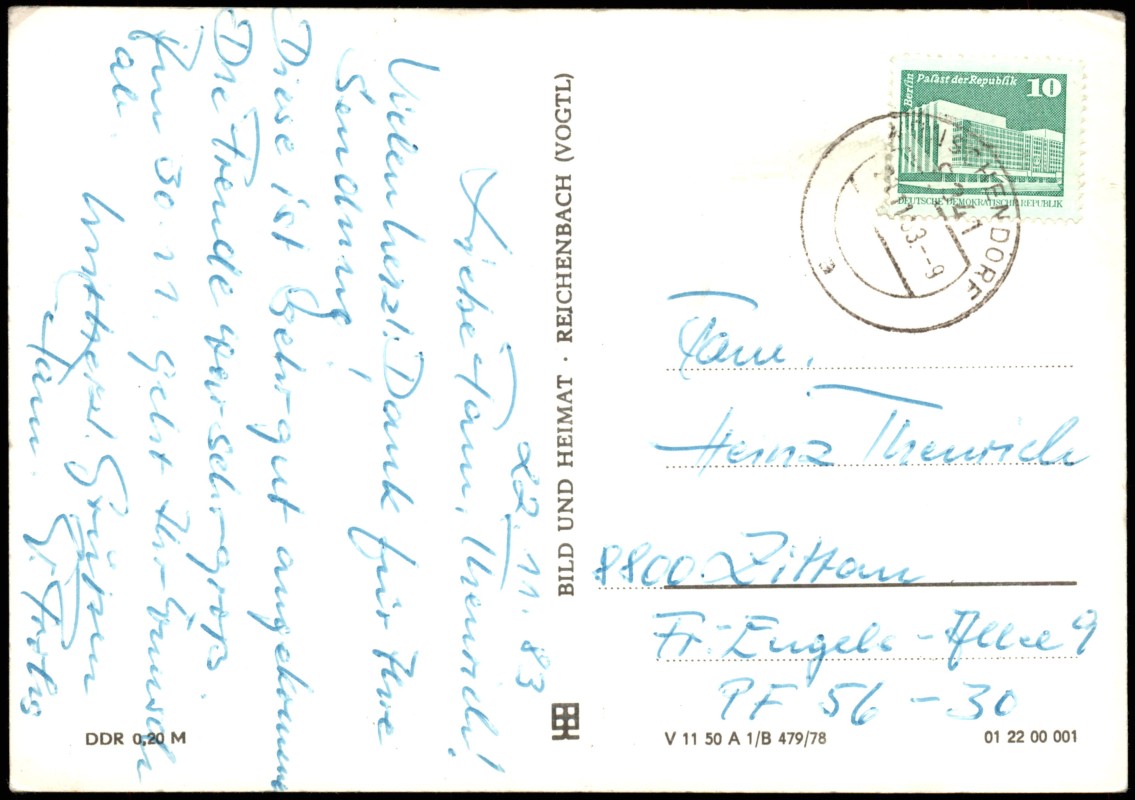 22.11.83
Liebe Fam. Thenrich!
Vielen herzl. Dank für Ihre
Sendung!
Diese ist sehr gut angekommen
Die Freude war sehr gross.
Am 30.11. geht Ihr Wunsch
ab.
Mit herzl. Grüßen
Fam.
BILD UND HEIMAT · REICHENBACH (VOGTL)
Berlin
Palast der Republik
10
DEUTSCHE DEMOKRATISCHE REPUBLIK
Fam.
Heinz Thenrich
8800 Zittau
Fr.-Engels-Allee 9
PF 56-30
DDR 0,20 M
V 11 50 A 1/B 479/78
01 22 00 001